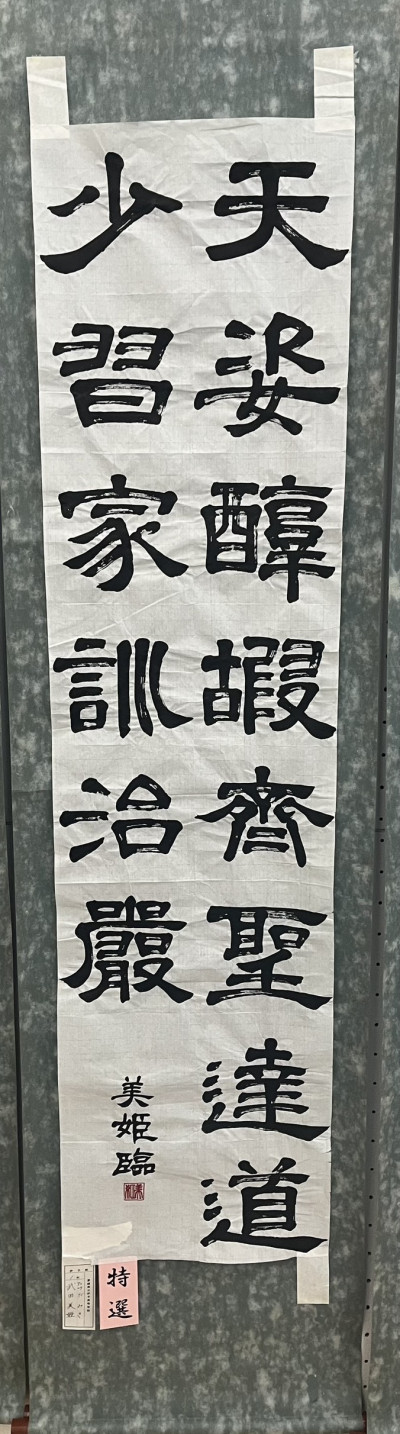 天姿醇嘏齊聖達道
少習家訓治嚴
美姫臨
特選